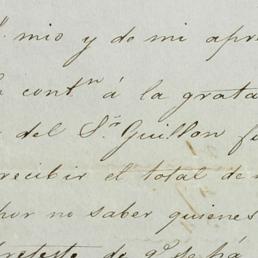 mio y de mi apr
contⁿ á la grata
del Sʳ Guillon
recibir el total de
por no saber quienes
de qᵉ se há